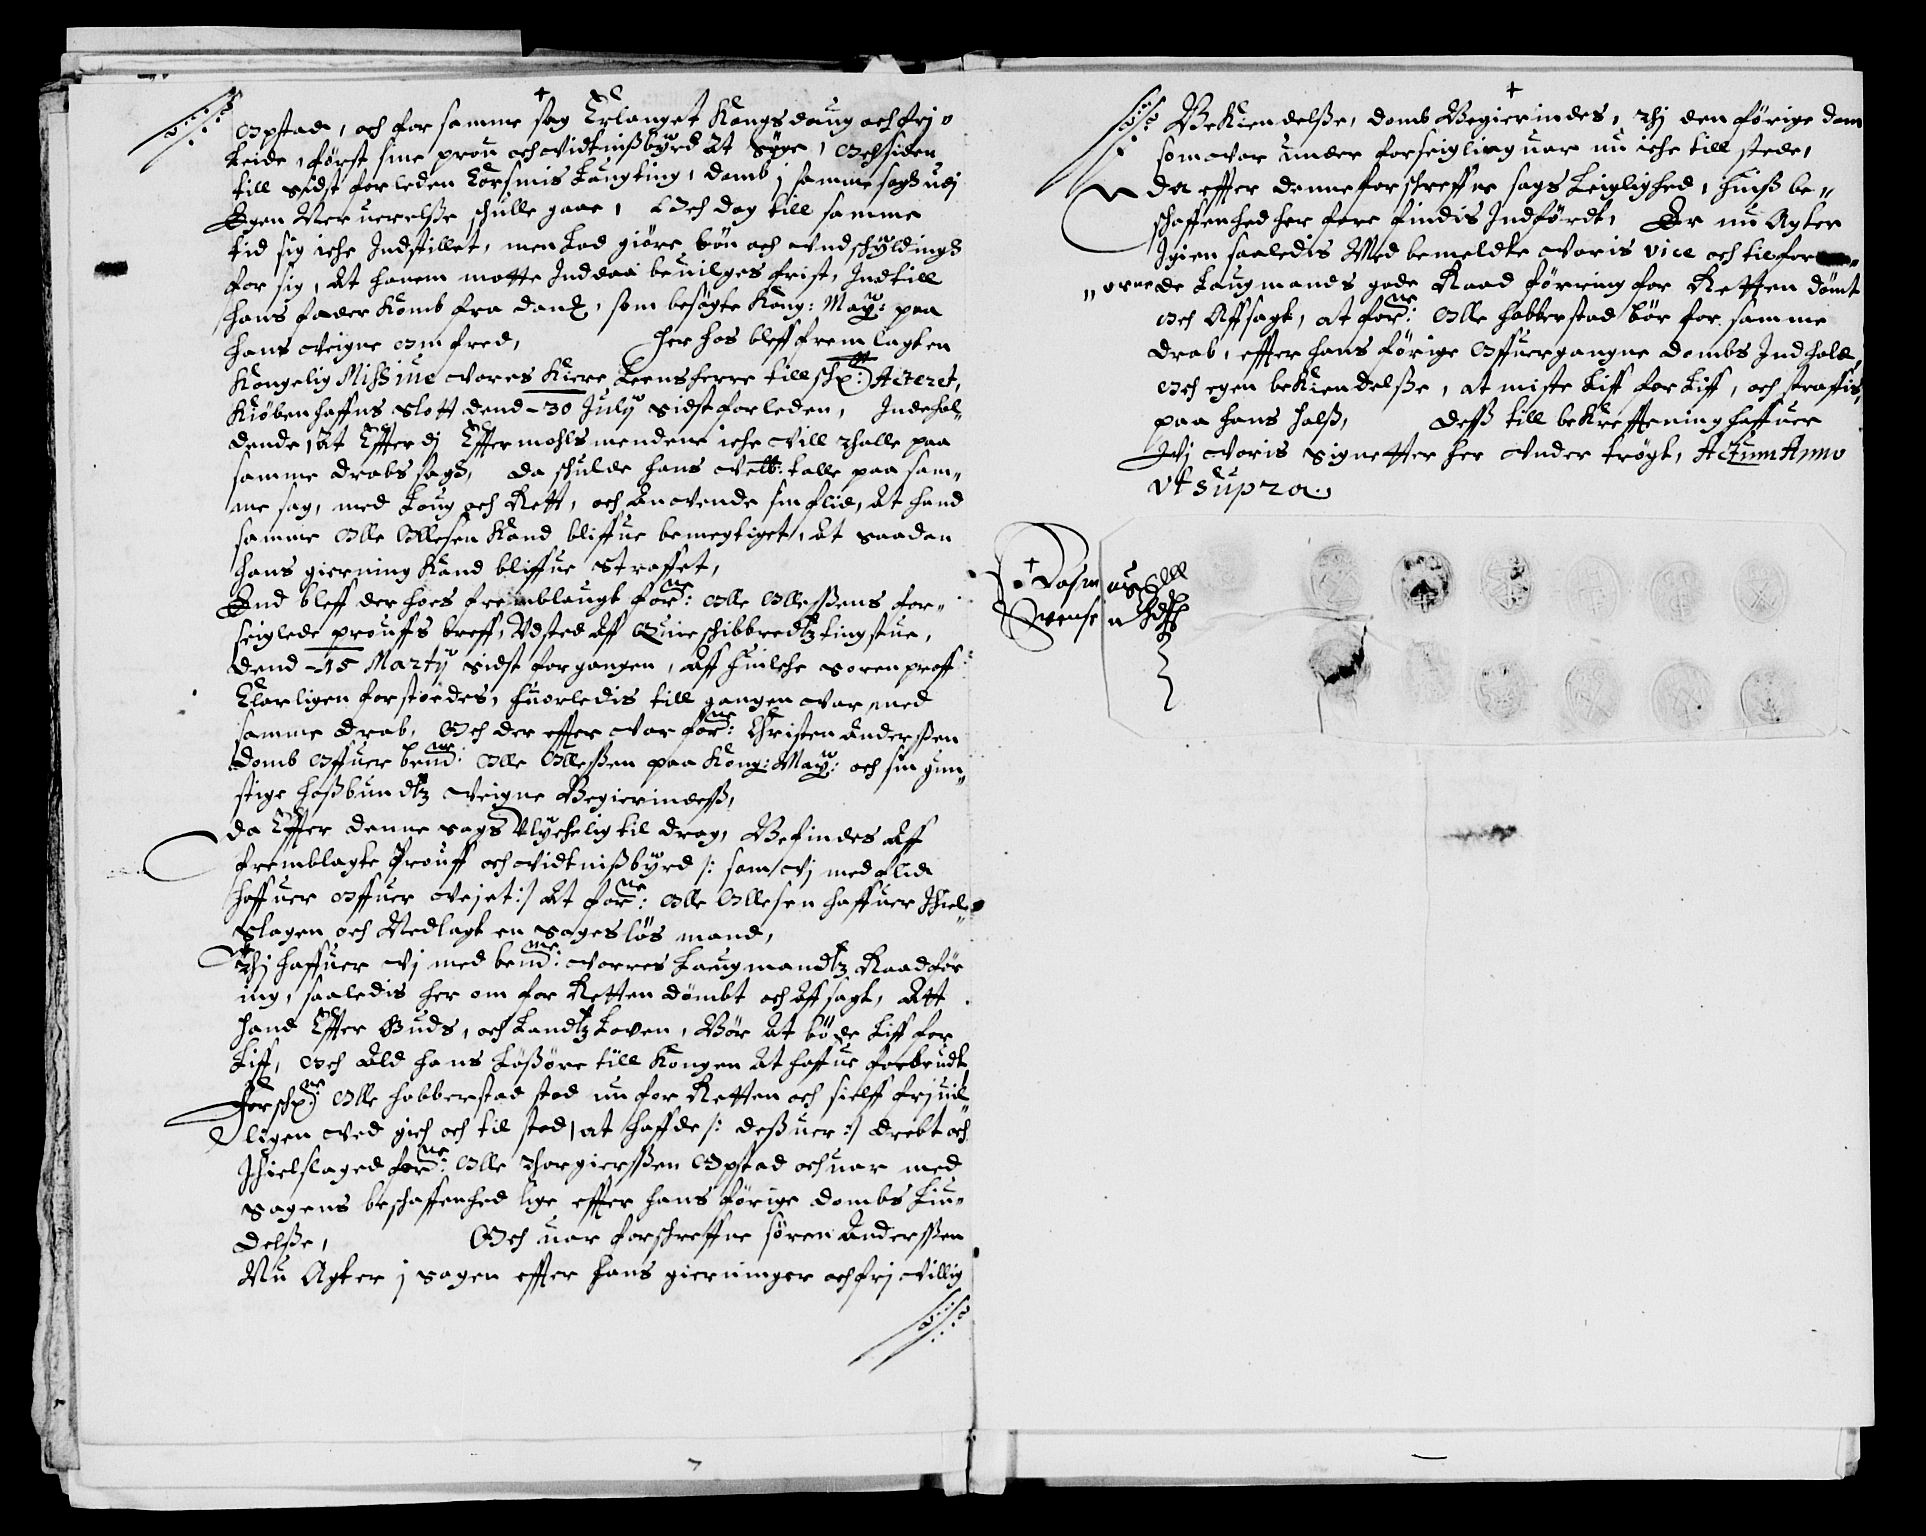 Opstad, och for samme sag Erlanget Kongs daug och frj
Leide, först sine prou och vidtnißbyrd at söge, Och siden
till sidst forleden Lorsmis Laugting, domb j samme sag udj
Egen Neruerelße schulle gaae, Och dog till samme
tid sig iche Indstillet, men Lod giöre bön och vndschyldings
for sig, At hanem motte Inddaa beuilges frist, Indtill
hans fader Komb fra Danm:, som besögte Kong: May: paa
hans veigne om fred, Her hos bleff frem lagt en
Kongelig Missiue vores Kiere Leensherre tillsch: Acteret,
Kiöbenhaffns Slott dend 30 July sidstforleden, Indehol-
dende, At Effterdj Efftermohls mendene iche vill thalle paa
samme drabs sag, da schulde hans velb: talle paa sam-
me sag, med Loug och Rett, och anvende sin flid, at hand
samme Olle Ollesen Kand bliffue bemegtiget, at saadan
hans gierning Kand bliffue Straffet,
End bleff der hoes fremblaugt forne: Olle Olleßens for-
seiglede prouffs breff, Vdsted Aff Quineschibbredtz tingstue,
dend 15 Marty sidst forgangen, Aff huilche sorenproff
Klarligen forstoedes, huorledis till gangen var med
samme drab, Och der effter var forne: Christen Anderßen
domb offuer bemte: Olle Olleßen paa Kong: May: och sin gun-
stige hoßbundtz veigne Begierindeß,
da Effter denne sags Vlyckelig til drag, Befindes Aff
fremblagte Prouff och vidtnißbyrd /: som vj med flid
haffuer offuer vejet :/ At forne: Olle Ollesen haffuer Ihiel-
slagen och Nedlagt en sagesløs mand,
Thj haffuer vj med bemte: vorres Laugmandtz Raadför
ing, saaledis her om for Retten dömbt och Aff sagt, Att
hand Effter Guds, och Landtz Loven, Bör at böde Liff for
Liff, Och Ald hans Lößöre till Kongen at haffue forbrudt
Forschne: Olle Hobberstad stod nu for Retten och sielff frjuil
ligen ved gich och til stod, at haffde /: desuer :/ drebt och
Ihielslaged forne: Olle Thorgierßen Opstad och uar med
Sagens beschaffenhed lige effter hans förige dombs Liu-
delße, Och uar forschreffne Sören Anderßen
Nu Agter j sagen effter hans gierninger och frj villig
Bekiendelße, domb Begierindes, Thj den förige dom
som var under forseigling uar nu iche till stede,
da effter denne forschreffne sags Leiglighed, huiß be-
schaffenhed her fore findis Indfördt, Er nu Agter
Igien saaledis Med bemeldte voris vice och tilfor-
ornede Laugmands gode Raad föring for Retten dömt
och Affsagt, at forne: Olle Hobberstad bör for samme
drab, effter hans förige Offuergangne dombs Indhold,
och egen bekiendelße, at miste Liff for Liff, och straffis,
paa hans halß, Deß till bekrefftening haffuer
Wj voris Signetter her vnder trögt, Actum Anno
Vt supra.